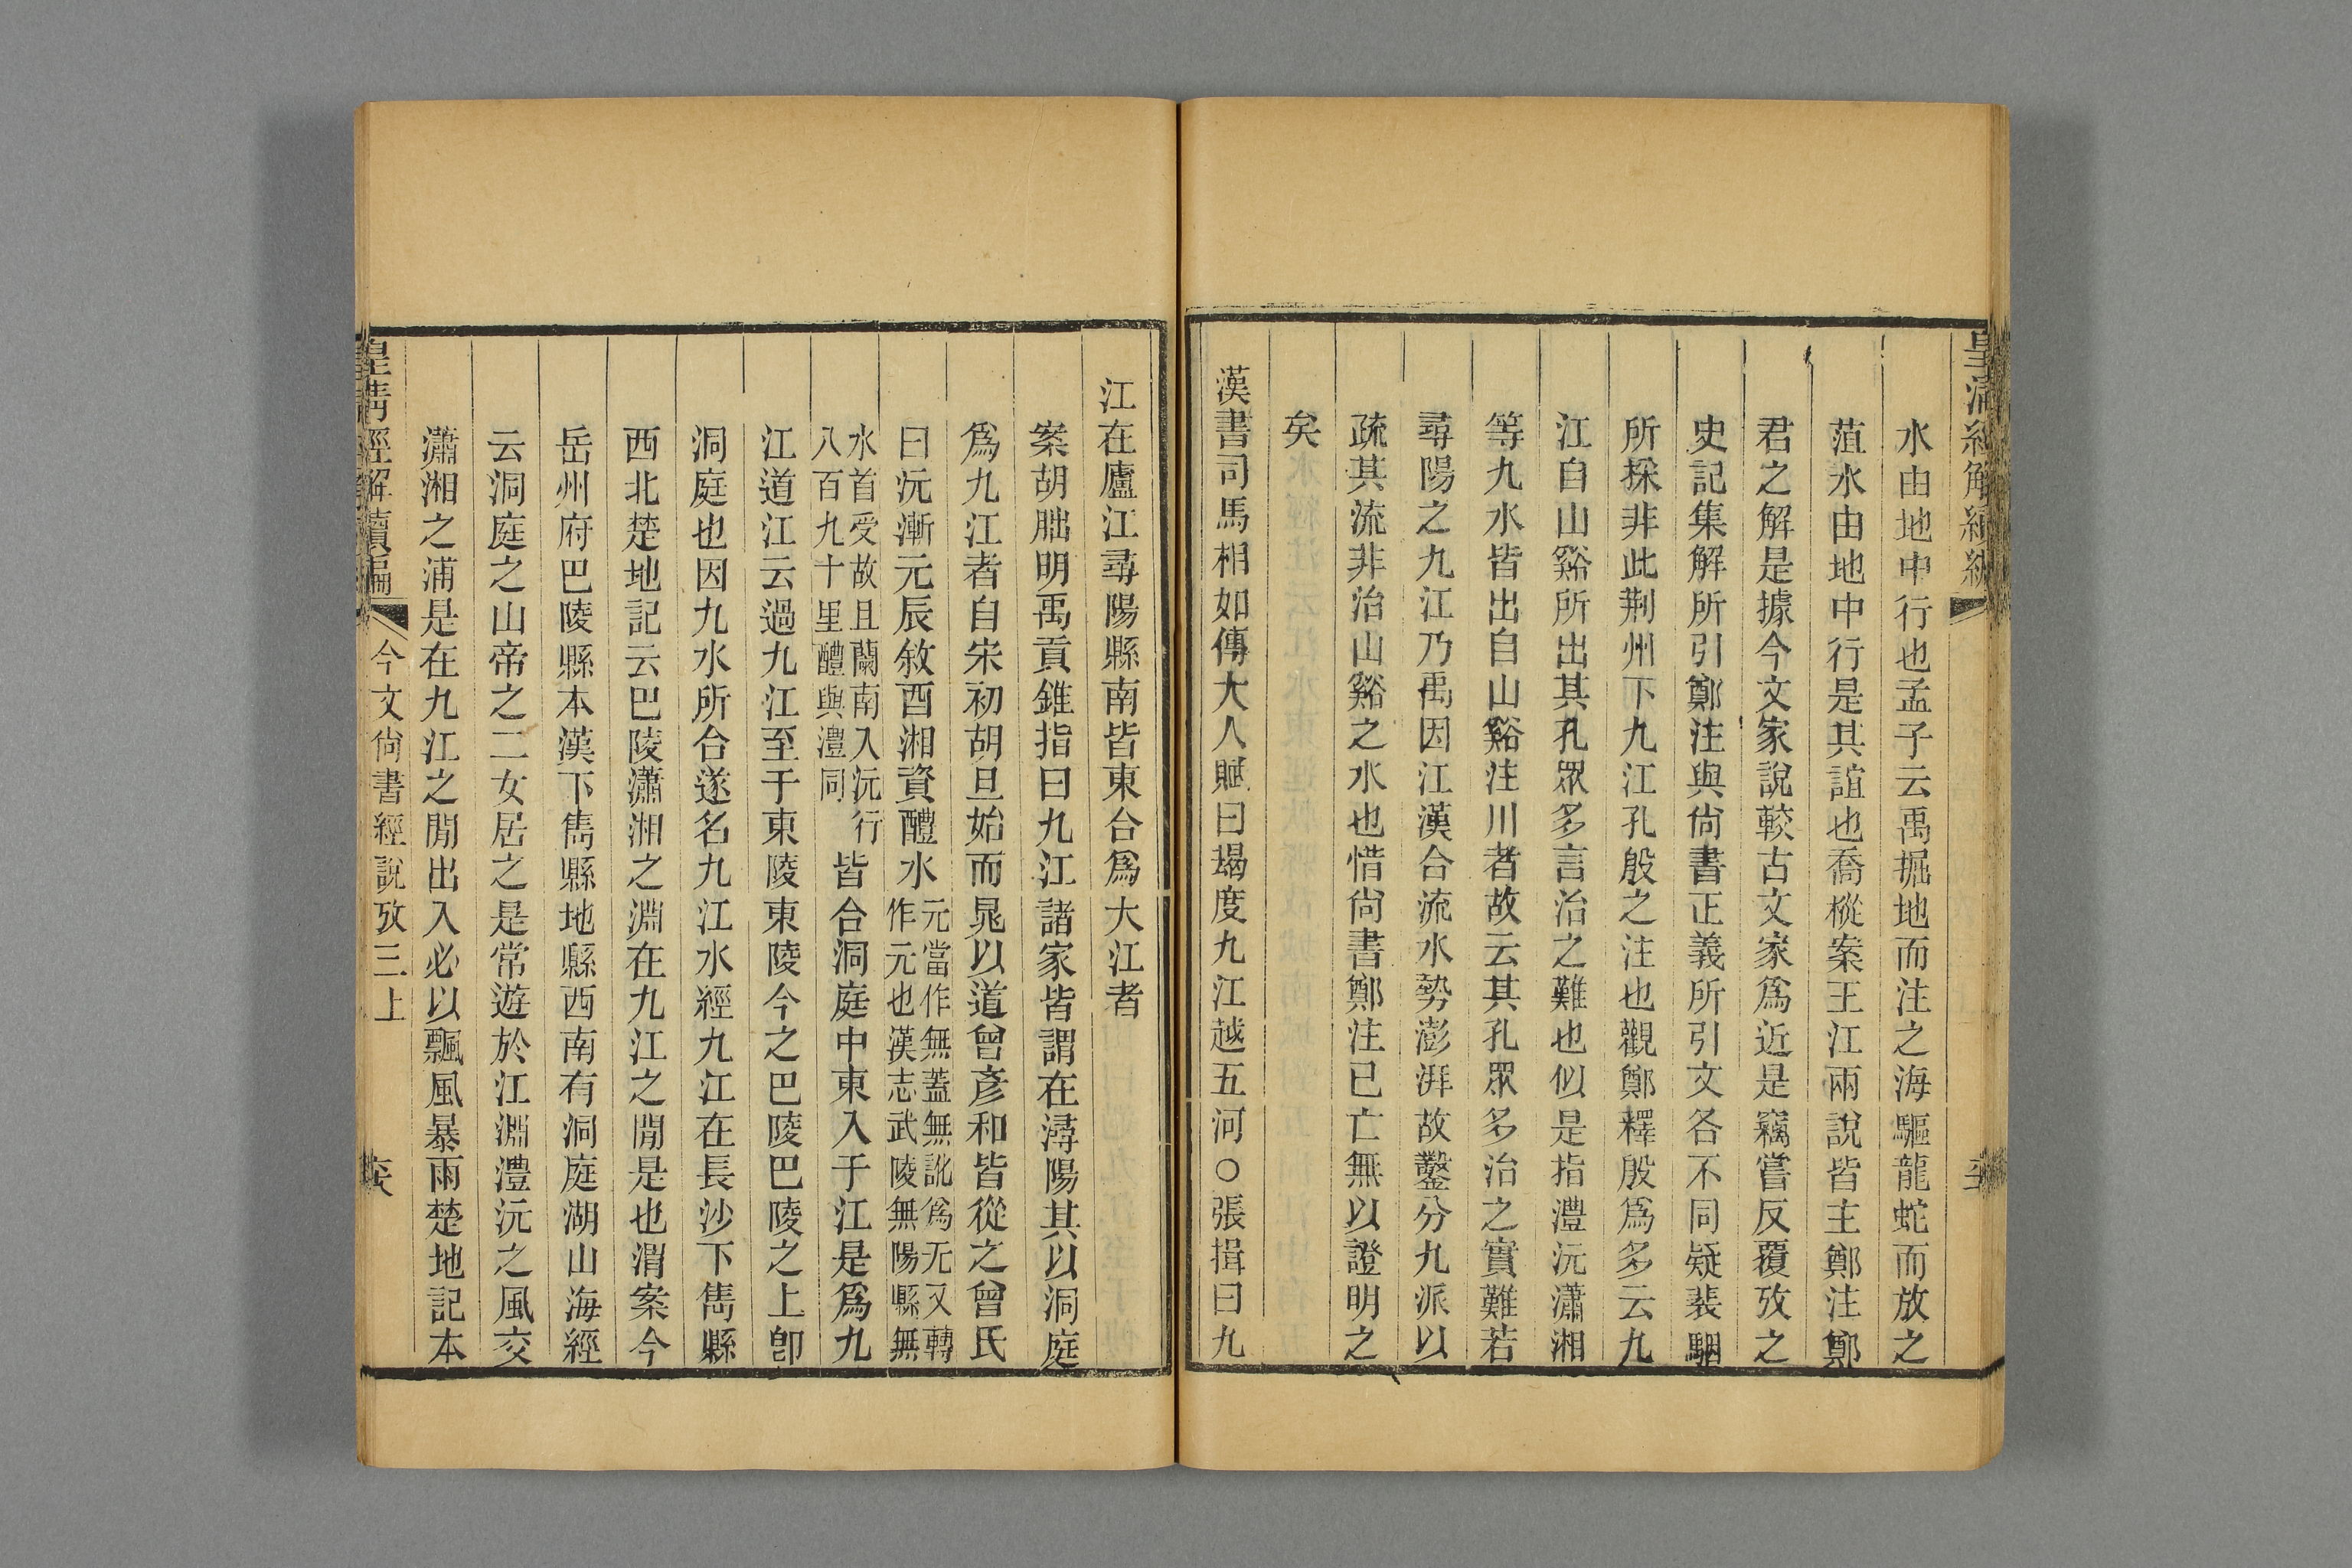 皇清經解續編
水由地中行也孟子云禹掘地而注之海驅龍蛇而放之
菹水由地中行是其誼也喬樅案王江兩說皆主鄭注鄭
君之解是據今文家說較古文家爲近是竊嘗反覆攷之
史記集解所引鄭注與尙書正義所引文各不同疑裴駰
所採非此荆州下九江孔殷之注也觀鄭釋殷爲多云九
江自山谿所出其孔眾多言治之難也似是指澧沅瀟湘
等九水皆出自山谿注川者故云其孔眾多治之實難若
尋陽之九江乃禹因江漢合流水勢澎湃故鑿分九派以
疏其流非治山谿之水也惜尙書鄭注已亡無以證明之
矣
漢書司馬相如傳大人賦曰朅度九江越五河○張揖曰九
江在廬江尋陽縣南皆東合爲大江者
案胡朏明禹貢錐指曰九江諸家皆謂在潯陽其以洞庭
爲九江者自宋初胡旦始而晁以道曾彥和皆從之曾氏
曰沅漸元辰敘酉湘資醴水元當作無蓋無訛爲无又轉
作元也漢志武陵無陽縣無
水首受故且蘭南入沅行
八百九十里醴與澧同皆合洞庭中東入于江是爲九
江道江云過九江至于東陵東陵今之巴陵巴陵之上卽
洞庭也因九水所合遂名九江水經九江在長沙下雋縣
西北楚地記云巴陵瀟湘之淵在九江之閒是也渭案今
岳州府巴陵縣本漢下雋縣地縣西南有洞庭湖山海經
云洞庭之山帝之二女居之是常遊於江淵澧沅之風交
瀟湘之浦是在九江之閒出入必以飄風暴雨楚地記本
皇清經解續編 今文尙書經說攷三上